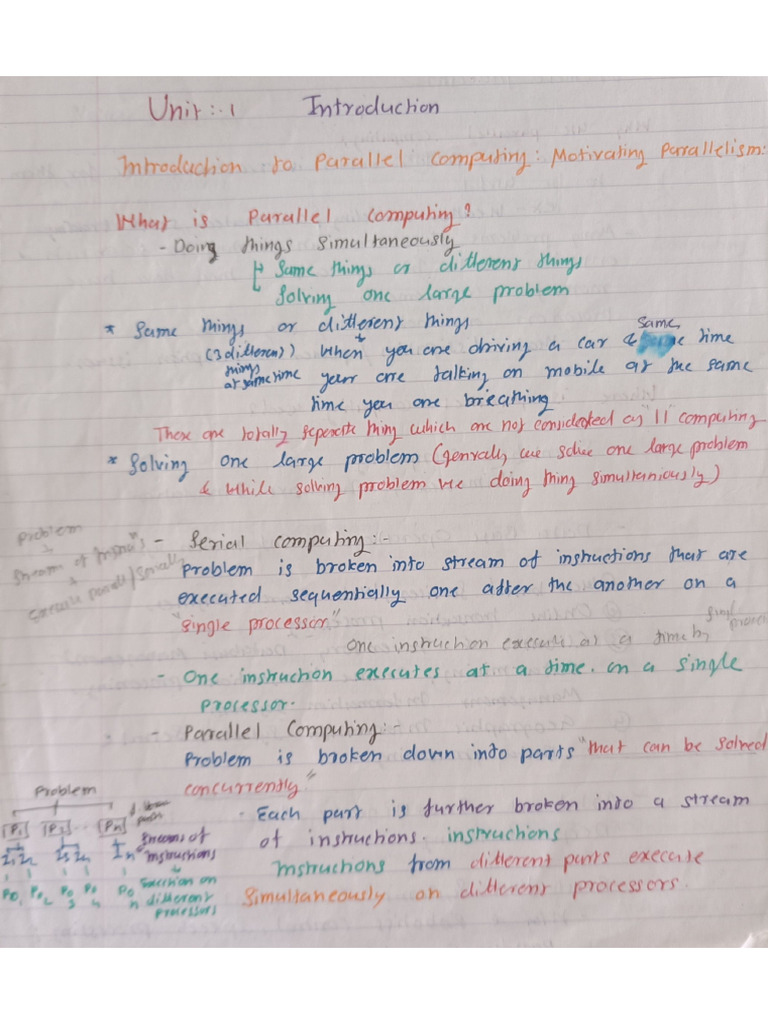 Unit :- 1 Introduction
Introduction to Parallel Computing: Motivating Parallelism:
What is Parallel Computing?
- Doing things simultaneously
Same things or different things
Solving one large problem
* Same things or different things
(3 different things at same time) When you are driving a car & same time
your are talking on mobile at the same
time you are breathing
These are totally seperate thing which are not considerated as "11" computing
* Solving one large problem (genrally we solve one large problem
& while solving problem we doing thing simultaniously)
Problem
stream of instru's
execute parall/serially
- Serial Computing:-
Problem is broken into stream of instructions that are
executed sequentially one after the another on a
"single processor"
One instruction execute at a time by single
- One instruction executes at a time. on a single
processor.
- Parallel Computing:-
Problem is broken down into parts "that can be solved
concurrently"
Problem
P1 P2 .. Pn
I1 I2 I3 I4 In
Streams of
Instructions
P01 P02 P03 P04 P0n
Execution on
different
processors
- Each part is further broken into a stream
of instructions. instructions
Instructions from different parts execute
Simultaneously on different processors.